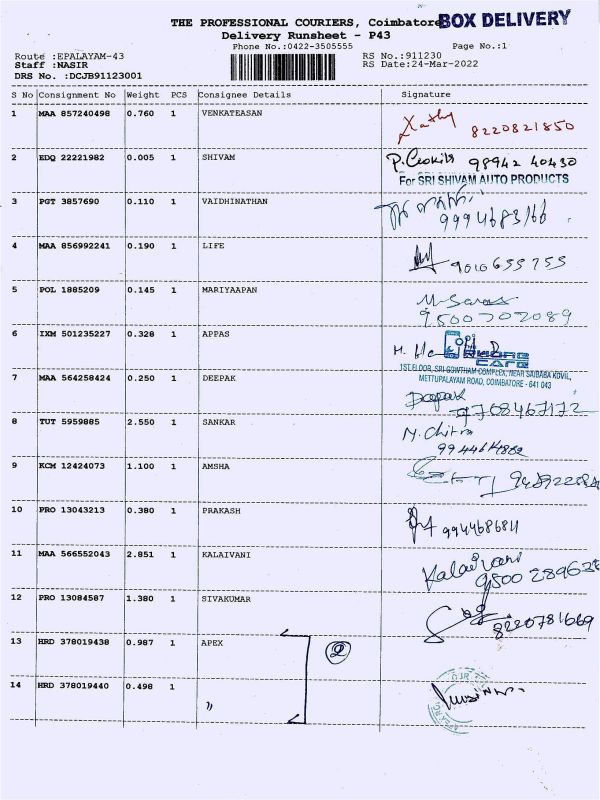 THE PROFESSIONAL COURIERS, Coimbatore
BOX DELIVERY
Delivery Runsheet - P43
Phone No.:0422-3505555
Page No.:1
Route :EPALAYAM-43
RS No.:911230
Staff :NASIR
RS Date:24-Mar-2022
DRS No. :DCJB91123001
S No Consignment No Weight PCS Consignee Details Signature
1 MAA 857240498 0.760 1 VENKATEASAN
8220821850
2 EDQ 22221982 0.005 1 SHIVAM
98942 40430
For SRI SHIVAM AUTO PRODUCTS
3 PGT 3857690 0.110 1 VAIDHINATHAN
4 MAA 856992241 0.190 1 LIFE
9010655755
5 POL 1885209 0.145 1 MARIYAAPAN
9500702089
6 IXM 501235227 0.328 1 APPAS
1ST FLOOR, SRI GOWTHAM COMPLEX, NEAR SAIBABA KOVIL,
7 MAA 564258424 0.250 1 DEEPAK
METTUPALAYAM ROAD, COIMBATORE - 641 043
Deepak
9708467172
8 TUT 5959885 2.550 1 SANKAR
N. Chitra
9 KCM 12424073 1.100 1 AMSHA
10 PRO 13043213 0.380 1 PRAKASH
11 MAA 566552043 2.851 1 KALAIVANI
Kalaivani
12 PRO 13084587 1.380 1 SIVAKUMAR
8220781669
13 HRD 378019438 0.987 1 APEX
2
14 HRD 378019440 0.498 1 "